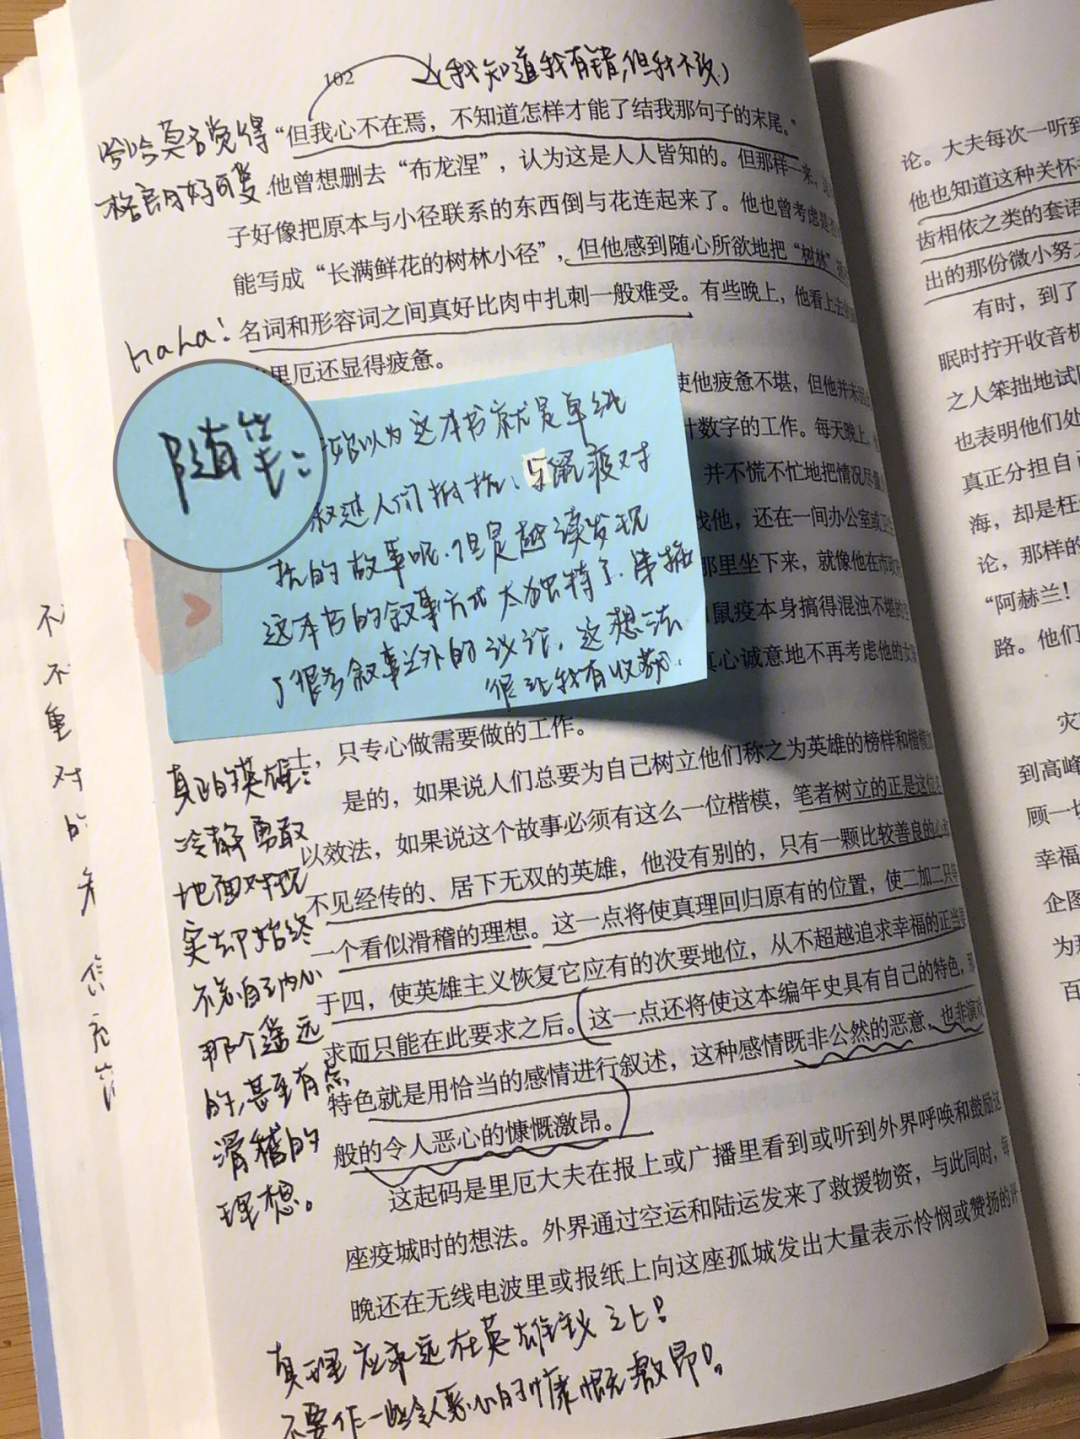 102
(我知道我有错,但我不改.)
哈哈莫名觉得
格朗好可爱
“但我心不在焉，不知道怎样才能了结我那句子的末尾。”
他曾想删去“布龙涅”，认为这是人人皆知的。但那样一来，
子好像把原本与小径联系的东西倒与花连起来了。他也曾考虑是否
能写成“长满鲜花的树林小径”，但他感到随心所欲地把“树林”
haha!
名词和形容词之间真好比肉中扎刺一般难受。有些晚上，他看上去
里厄还显得疲惫。
使他疲惫不堪，但他并未
计数字的工作。每天晚上，
并不慌不忙地把情况尽量
找他，还在一间办公室或
那里坐下来，就像他在市政
鼠疫本身搞得混浊不堪的
真心诚意地不再考虑他的女
随笔：
以为这本书就是单纯
叙述人们抵抗、与鼠疫对
抗的故事呢.但是越读发现
这本书的叙事方式太独特了.串插
了很多叙事之外的议论，这想法
很让我有收获.
士，只专心做需要做的工作。
是的，如果说人们总要为自己树立他们称之为英雄的榜样和楷模
以效法，如果说这个故事必须有这么一位楷模，笔者树立的正是这位
不见经传的、居下无双的英雄，他没有别的，只有一颗比较善良的心
一个看似滑稽的理想。这一点将使真理回归原有的位置，使二加二只
于四，使英雄主义恢复它应有的次要地位，从不超越追求幸福的正当
求而只能在此要求之后。这一点还将使这本编年史具有自己的特色，那
特色就是用恰当的感情进行叙述，这种感情既非公然的恶意，也非演戏
般的令人恶心的慷慨激昂。
这起码是里厄大夫在报上或广播里看到或听到外界呼唤和鼓励这
座疫城时的想法。外界通过空运和陆运发来了救援物资，与此同时，每
晚还在无线电波里或报纸上向这座孤城发出大量表示怜悯或赞扬的评
真正的英雄：
冷静勇敢
地面对现
实却始终
不忘自己内心
那个遥远
的,甚至有点
滑稽的
理想。
真理应永远在英雄主义之上!
不要作一些令人恶心的慷慨激昂!
不
重
对
论。大夫每次一听到
他也知道这种关怀
齿相依之类的套语
出的那份微小努力
有时，到了
眠时拧开收音机
之人笨拙地试
也表明他们处
真正分担自己
海，却是枉
论，那样的
“阿赫兰！
路。他们
灾
到高峰
顾一切
幸福
企图
为
百